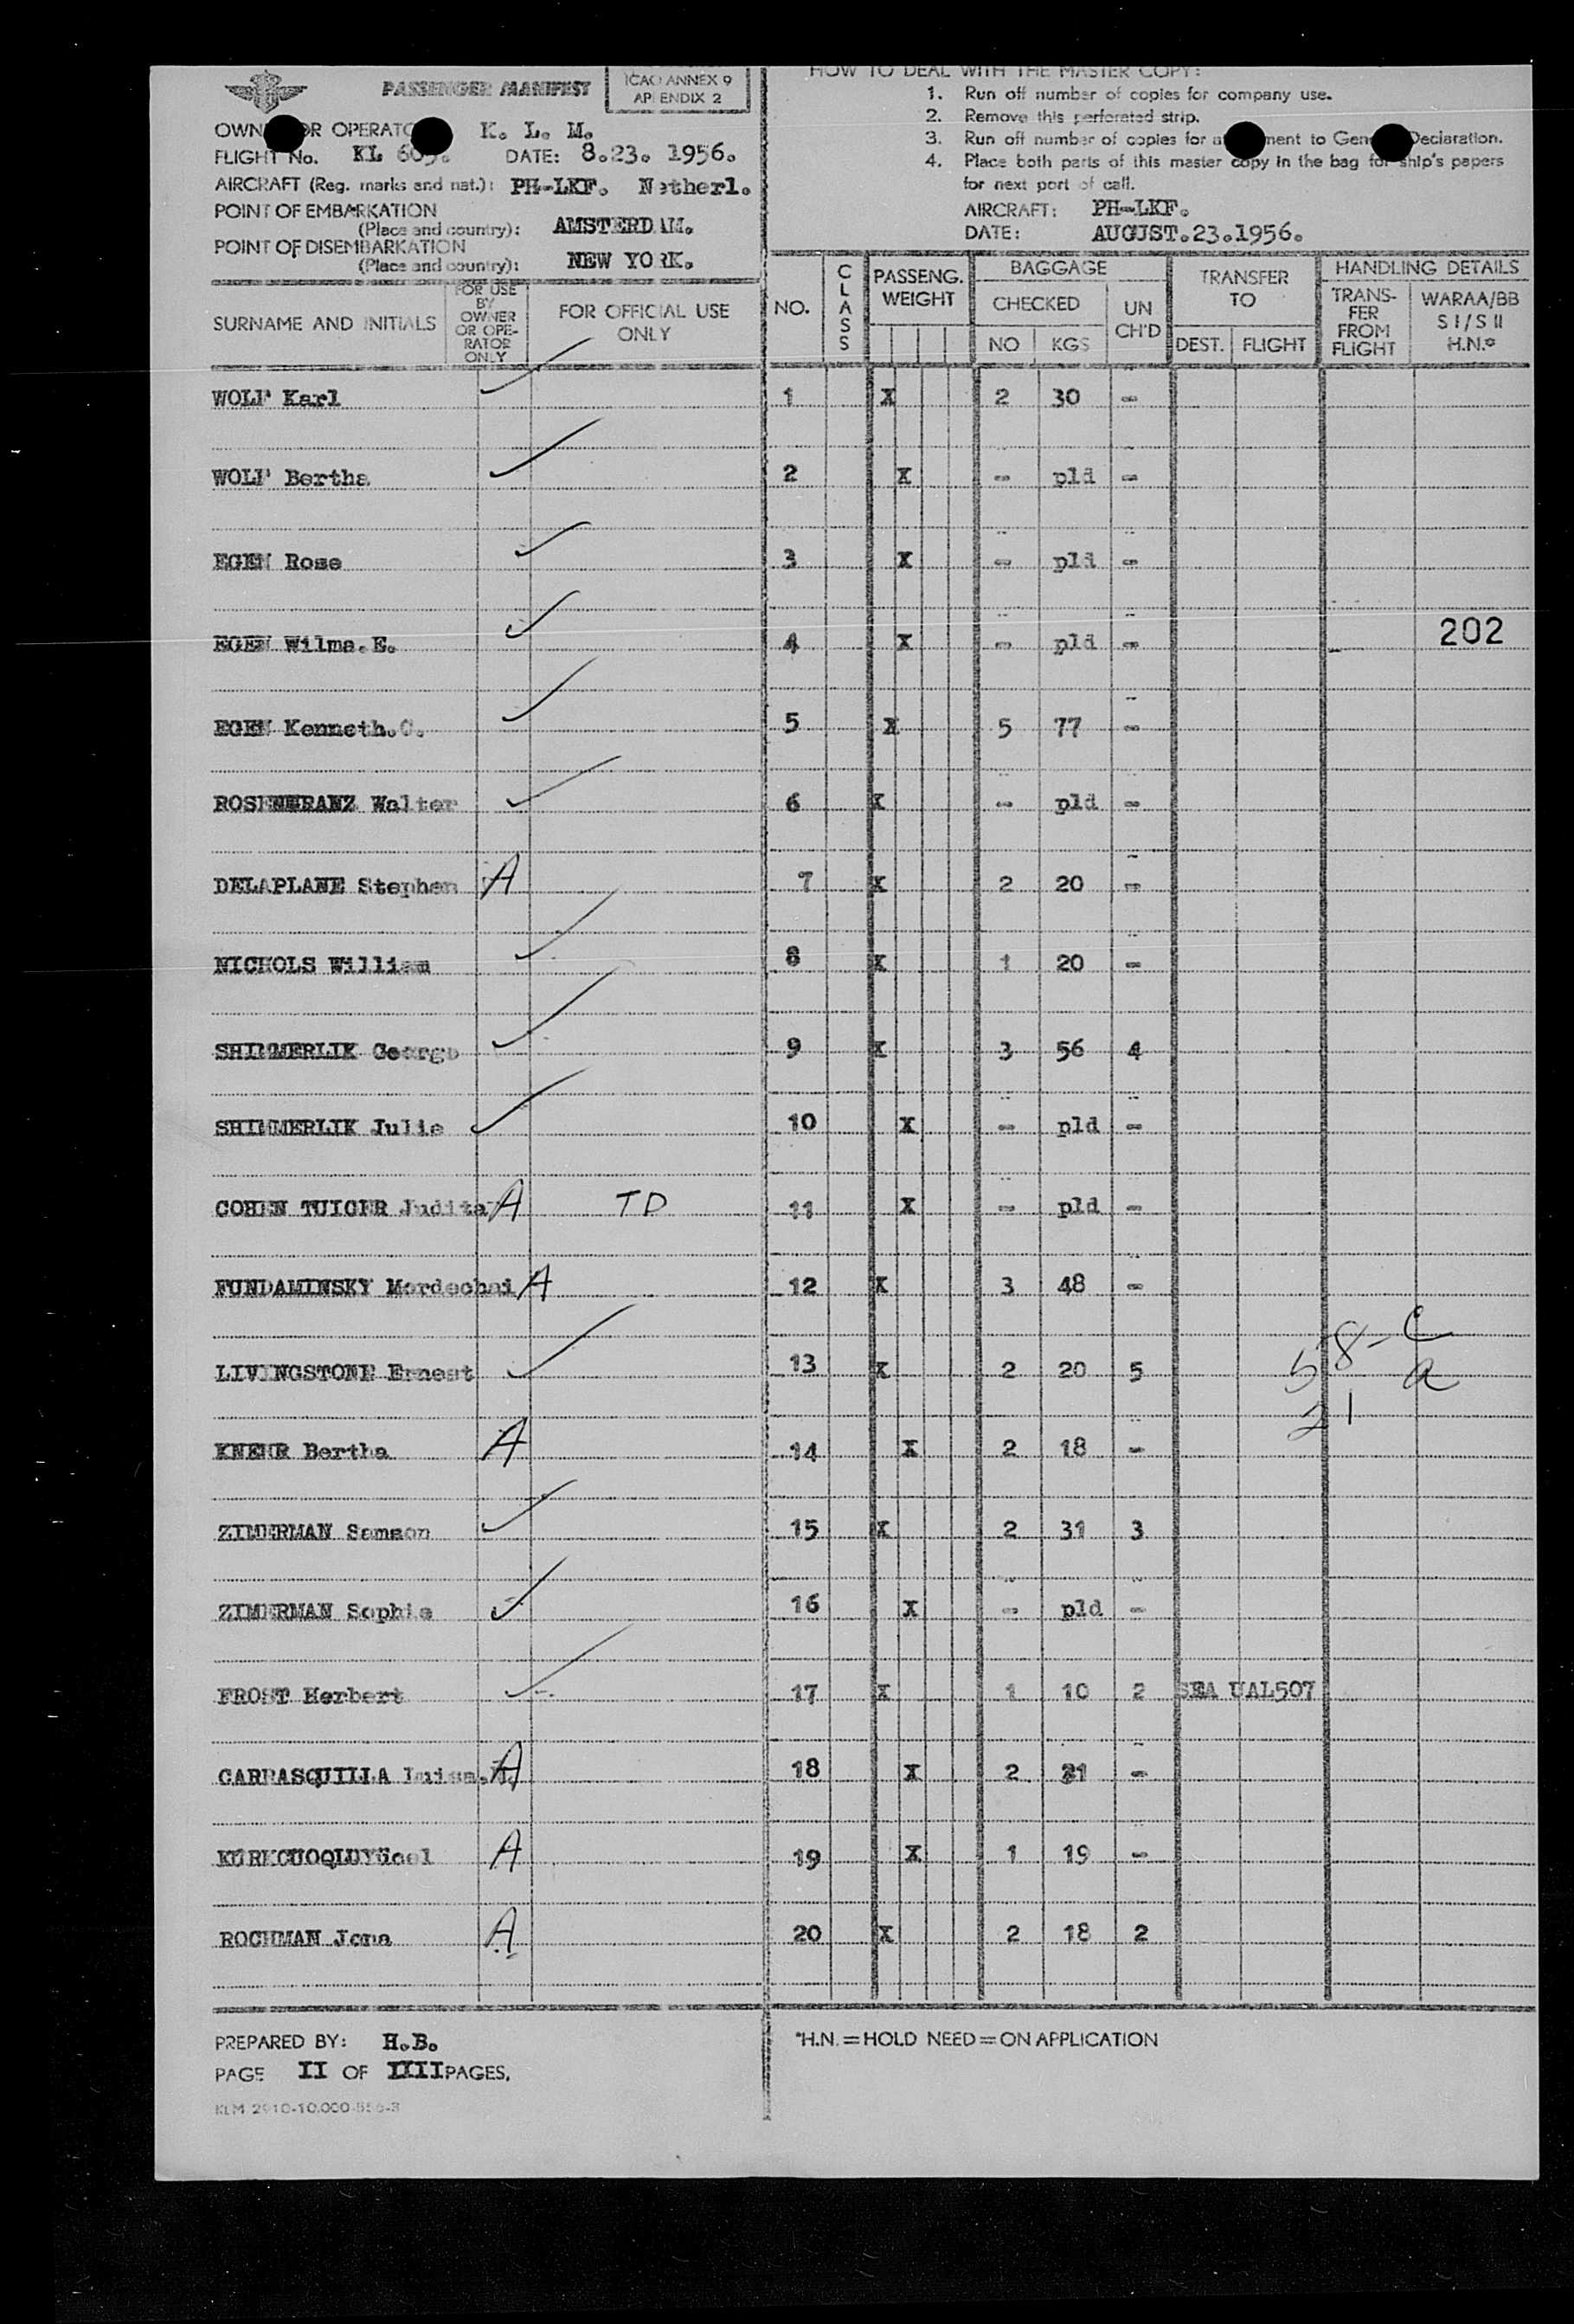 PASSENGER MANIFEST
ICAO ANNEX 9
APPENDIX 2
OWNER OR OPERATOR K. L. M.
FLIGHT No. KL DATE: 8.23. 1956.
AIRCRAFT (Reg. marks and nat.): PH-LKF. Netherl.
POINT OF EMBARKATION
(Place and country): AMSTERDAM.
POINT OF DISEMBARKATION
(Place and country): NEW YORK.
HOW TO DEAL WITH THE MASTER COPY:
1. Run off number of copies for company use.
2. Remove this perforated strip.
3. Run off number of copies for attachment to General Declaration.
4. Place both parts of this master copy in the bag for ship's papers
for next port of call.
AIRCRAFT: PH-LKF.
DATE: AUGUST.23.1956.
SURNAME AND INITIALS
FOR USE BY OWNER OR OPE-RATOR ONLY
FOR OFFICIAL USE ONLY
NO.
CLASS
PASSENG. WEIGHT
BAGGAGE
CHECKED
NO KGS
UN CH'D
TRANSFER TO
DEST. FLIGHT
HANDLING DETAILS
TRANS-FER FROM FLIGHT
WARAA/BB S I/S II H.N.*
WOLF Karl 1 X 2 30 -
WOLF Bertha 2 X - pld -
EGEN Rose 3 X - pld -
EGEN Wilma.E. 4 X - pld - 202
EGEN Kenneth.C. 5 X 5 77 -
Walter 6 X - pld -
DELAPLANE Stephen A 7 X 2 20 -
NICHOLS William 8 X 1 20 -
SHIMMERLIK George 9 X 3 56 4
SHIMMERLIK Julie 10 X - pld -
COHEN TUIGER Judita A TD 11 X - pld -
FUNDAMINSKY Mordechai A 12 X 3 48 -
58- C
LIVINGSTONE Ernest 13 X 2 20 5 a
21
KNEHR Bertha A 14 X 2 18 -
ZIMMERMAN Samson 15 X 2 31 3
ZIMMERMAN Sophie 16 X - pld -
FROST Herbert 17 X 1 10 2 SEA UAL507
CARRASQUILLA Luisa. A 18 X 2 21 -
A 19 X 1 19 -
ROCHMAN Jona A 20 X 2 18 2
PREPARED BY: H.B.
PAGE II OF IIII PAGES.
*H.N. = HOLD NEED = ON APPLICATION
KLM 2910-10.000-556-3